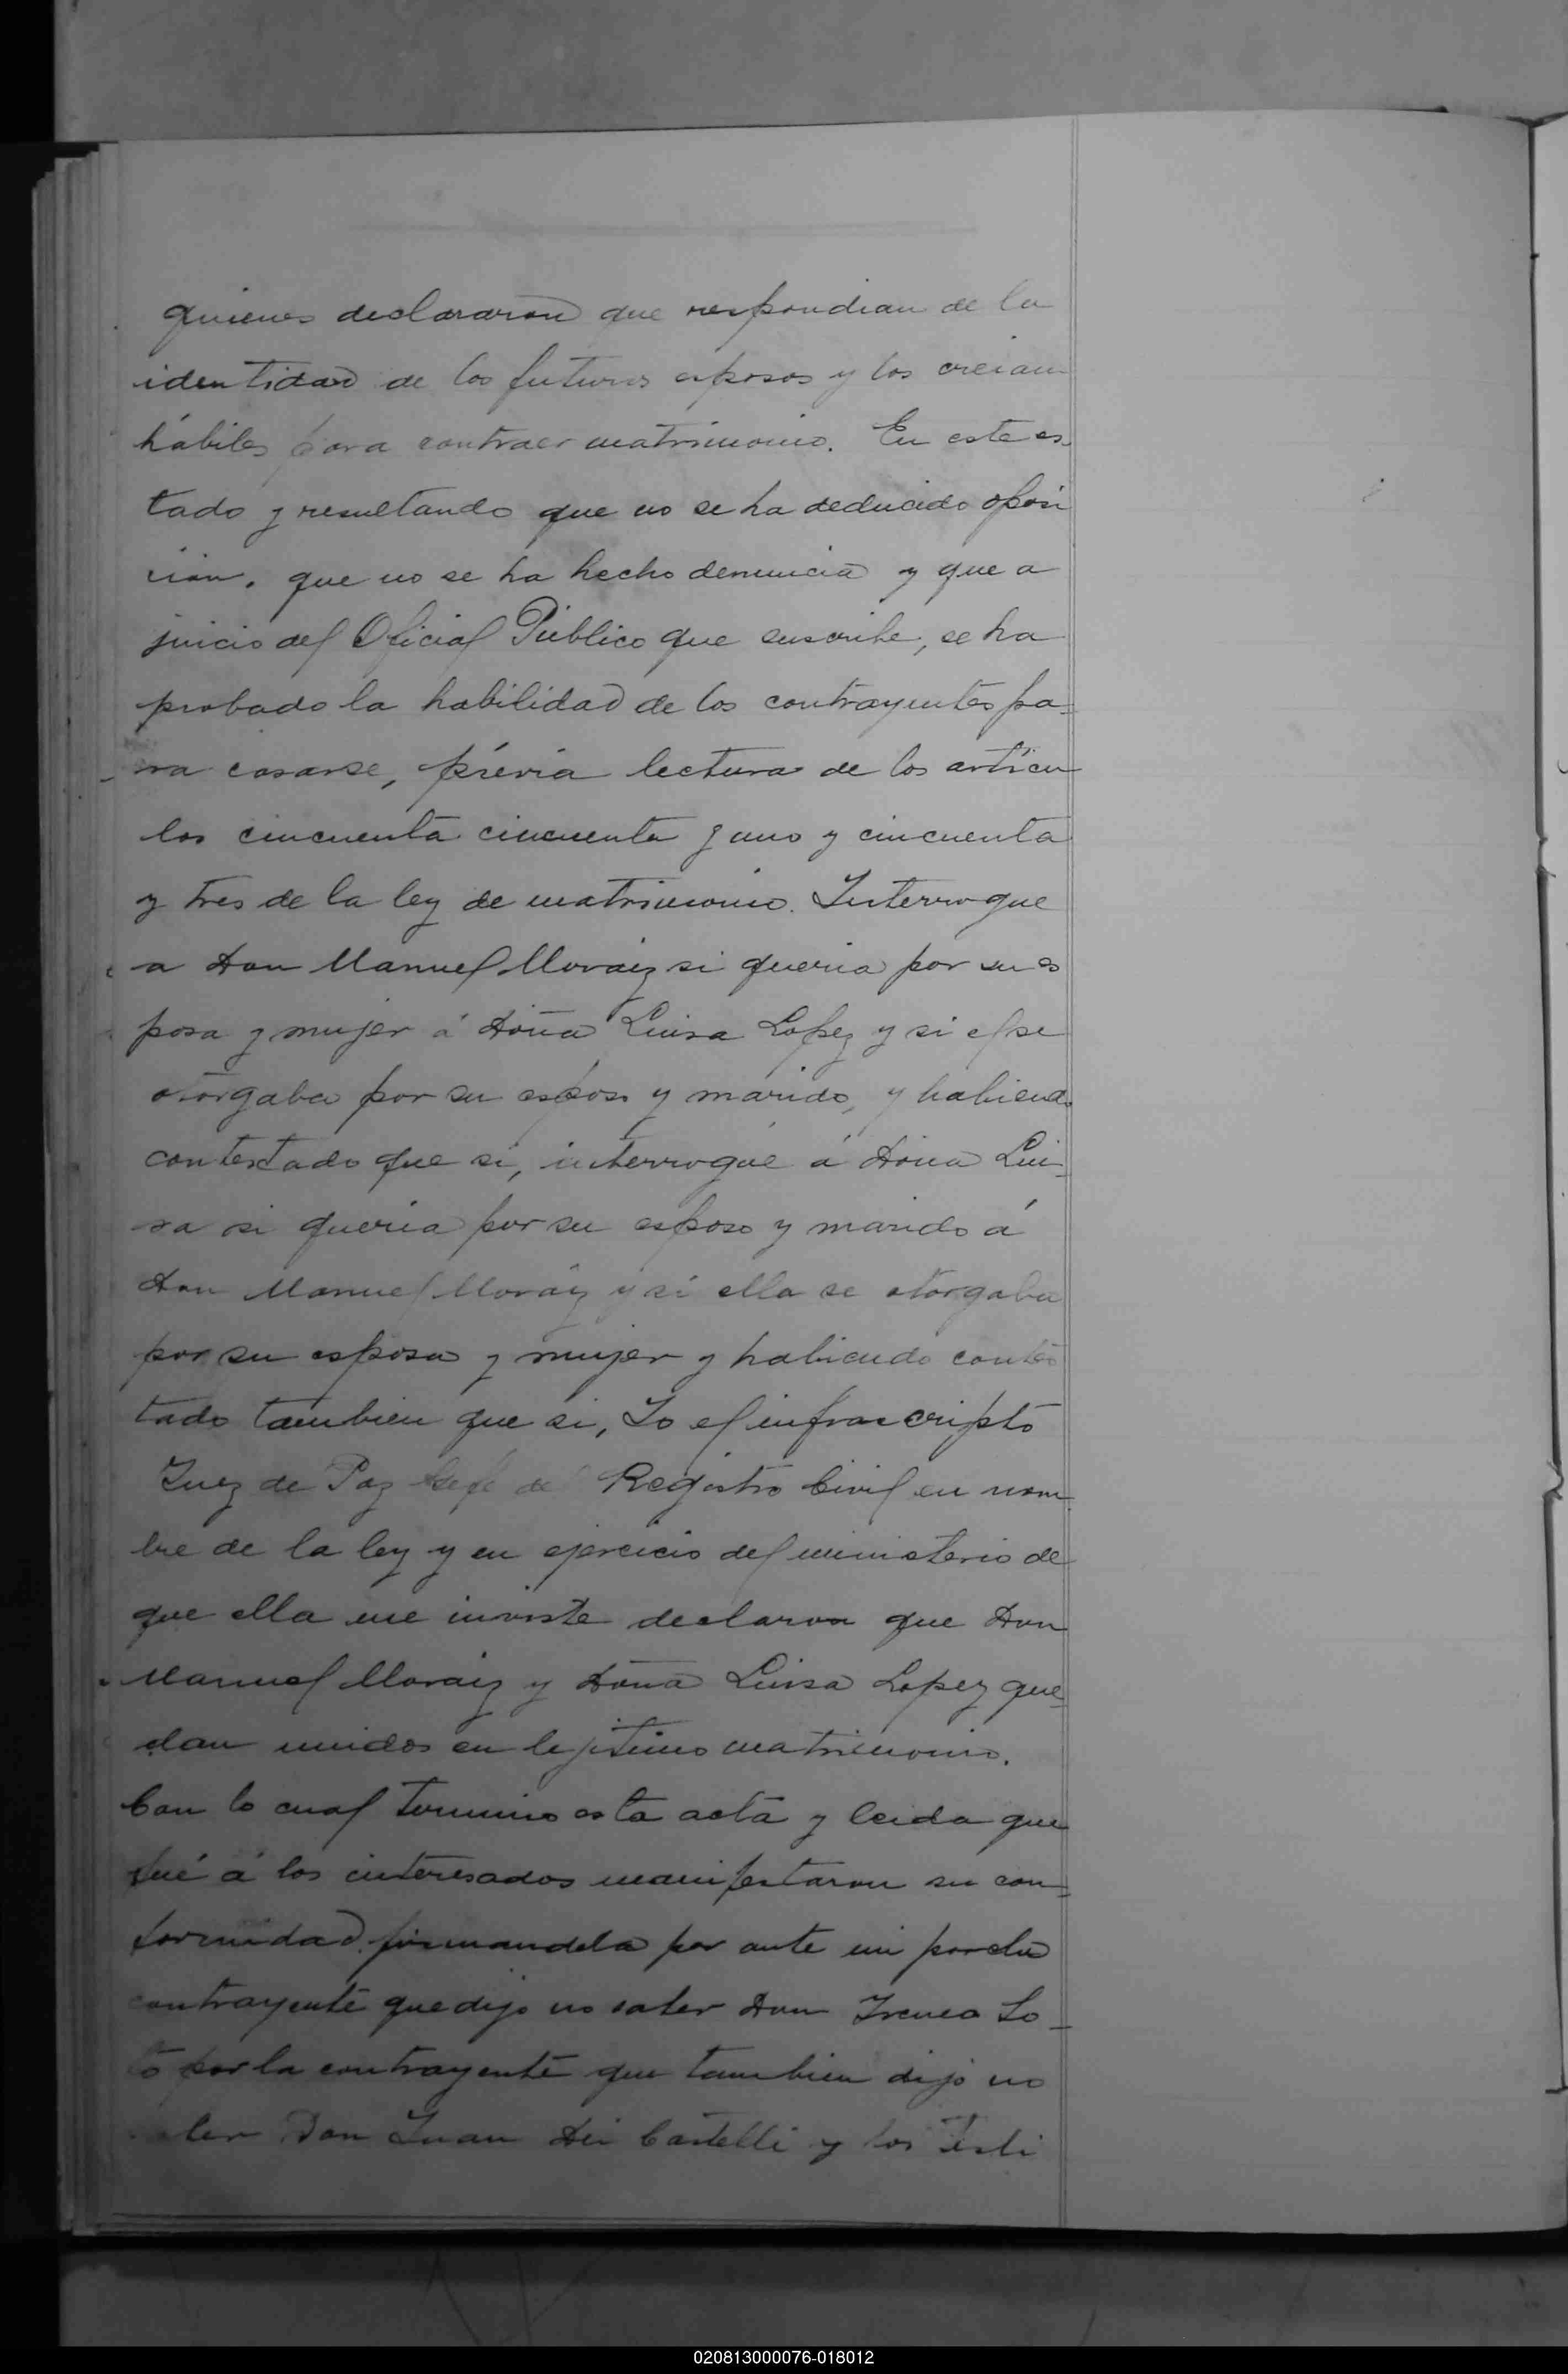 quienes declararon que respondian de la
identidad de los futuros esposos y los creian
hábiles para contraer matrimonio. En este es
tado y resultando que no se ha deducido oposi
ción, que no se ha hecho denuncia y que a
juicio del Oficial Público que suscribe, se ha
probado la habilidad de los contrayentes pa-
ra casarse, prévia lectura de los artícu
los cincuenta cincuenta y uno y cincuenta
y tres de la ley de matrimonio. Interrogue
a Don Manuel Moraiz si queria por su es
posa y mujer á Doña Luisa Lopez y si el se
otorgaba por su esposo y marido, y habiendo
contestado que si, interrogué á Doña Lui-
sa si queria por su esposo y marido á
Don Manuel Moraiz y si ella se otorgaba
por su esposa y mujer y habiendo contes
tado tambien que si, Yo el infrascripto
Juez de Paz Gefe del Registro Civil en nom
bre de la ley y en ejercicio del ministerio de
que ella me inviste declaron que Don
Manuel Moraiz y Doña Luisa Lopez que-
dan unidos en lejitimo matrimonio.
Con lo cual termino esta acta y leida que
fué á los interesados manifestaron su con-
formidad firmandola por ante mi por el
contrayente que dijo no saber Don Ireneo So-
to por la contrayente que tambien dijo no
saber Don Juan Dei Castelli y los testi